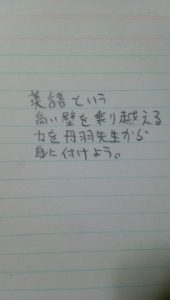 英語という
高い壁を乗り越える
力を丹羽先生から
身に付けよう。